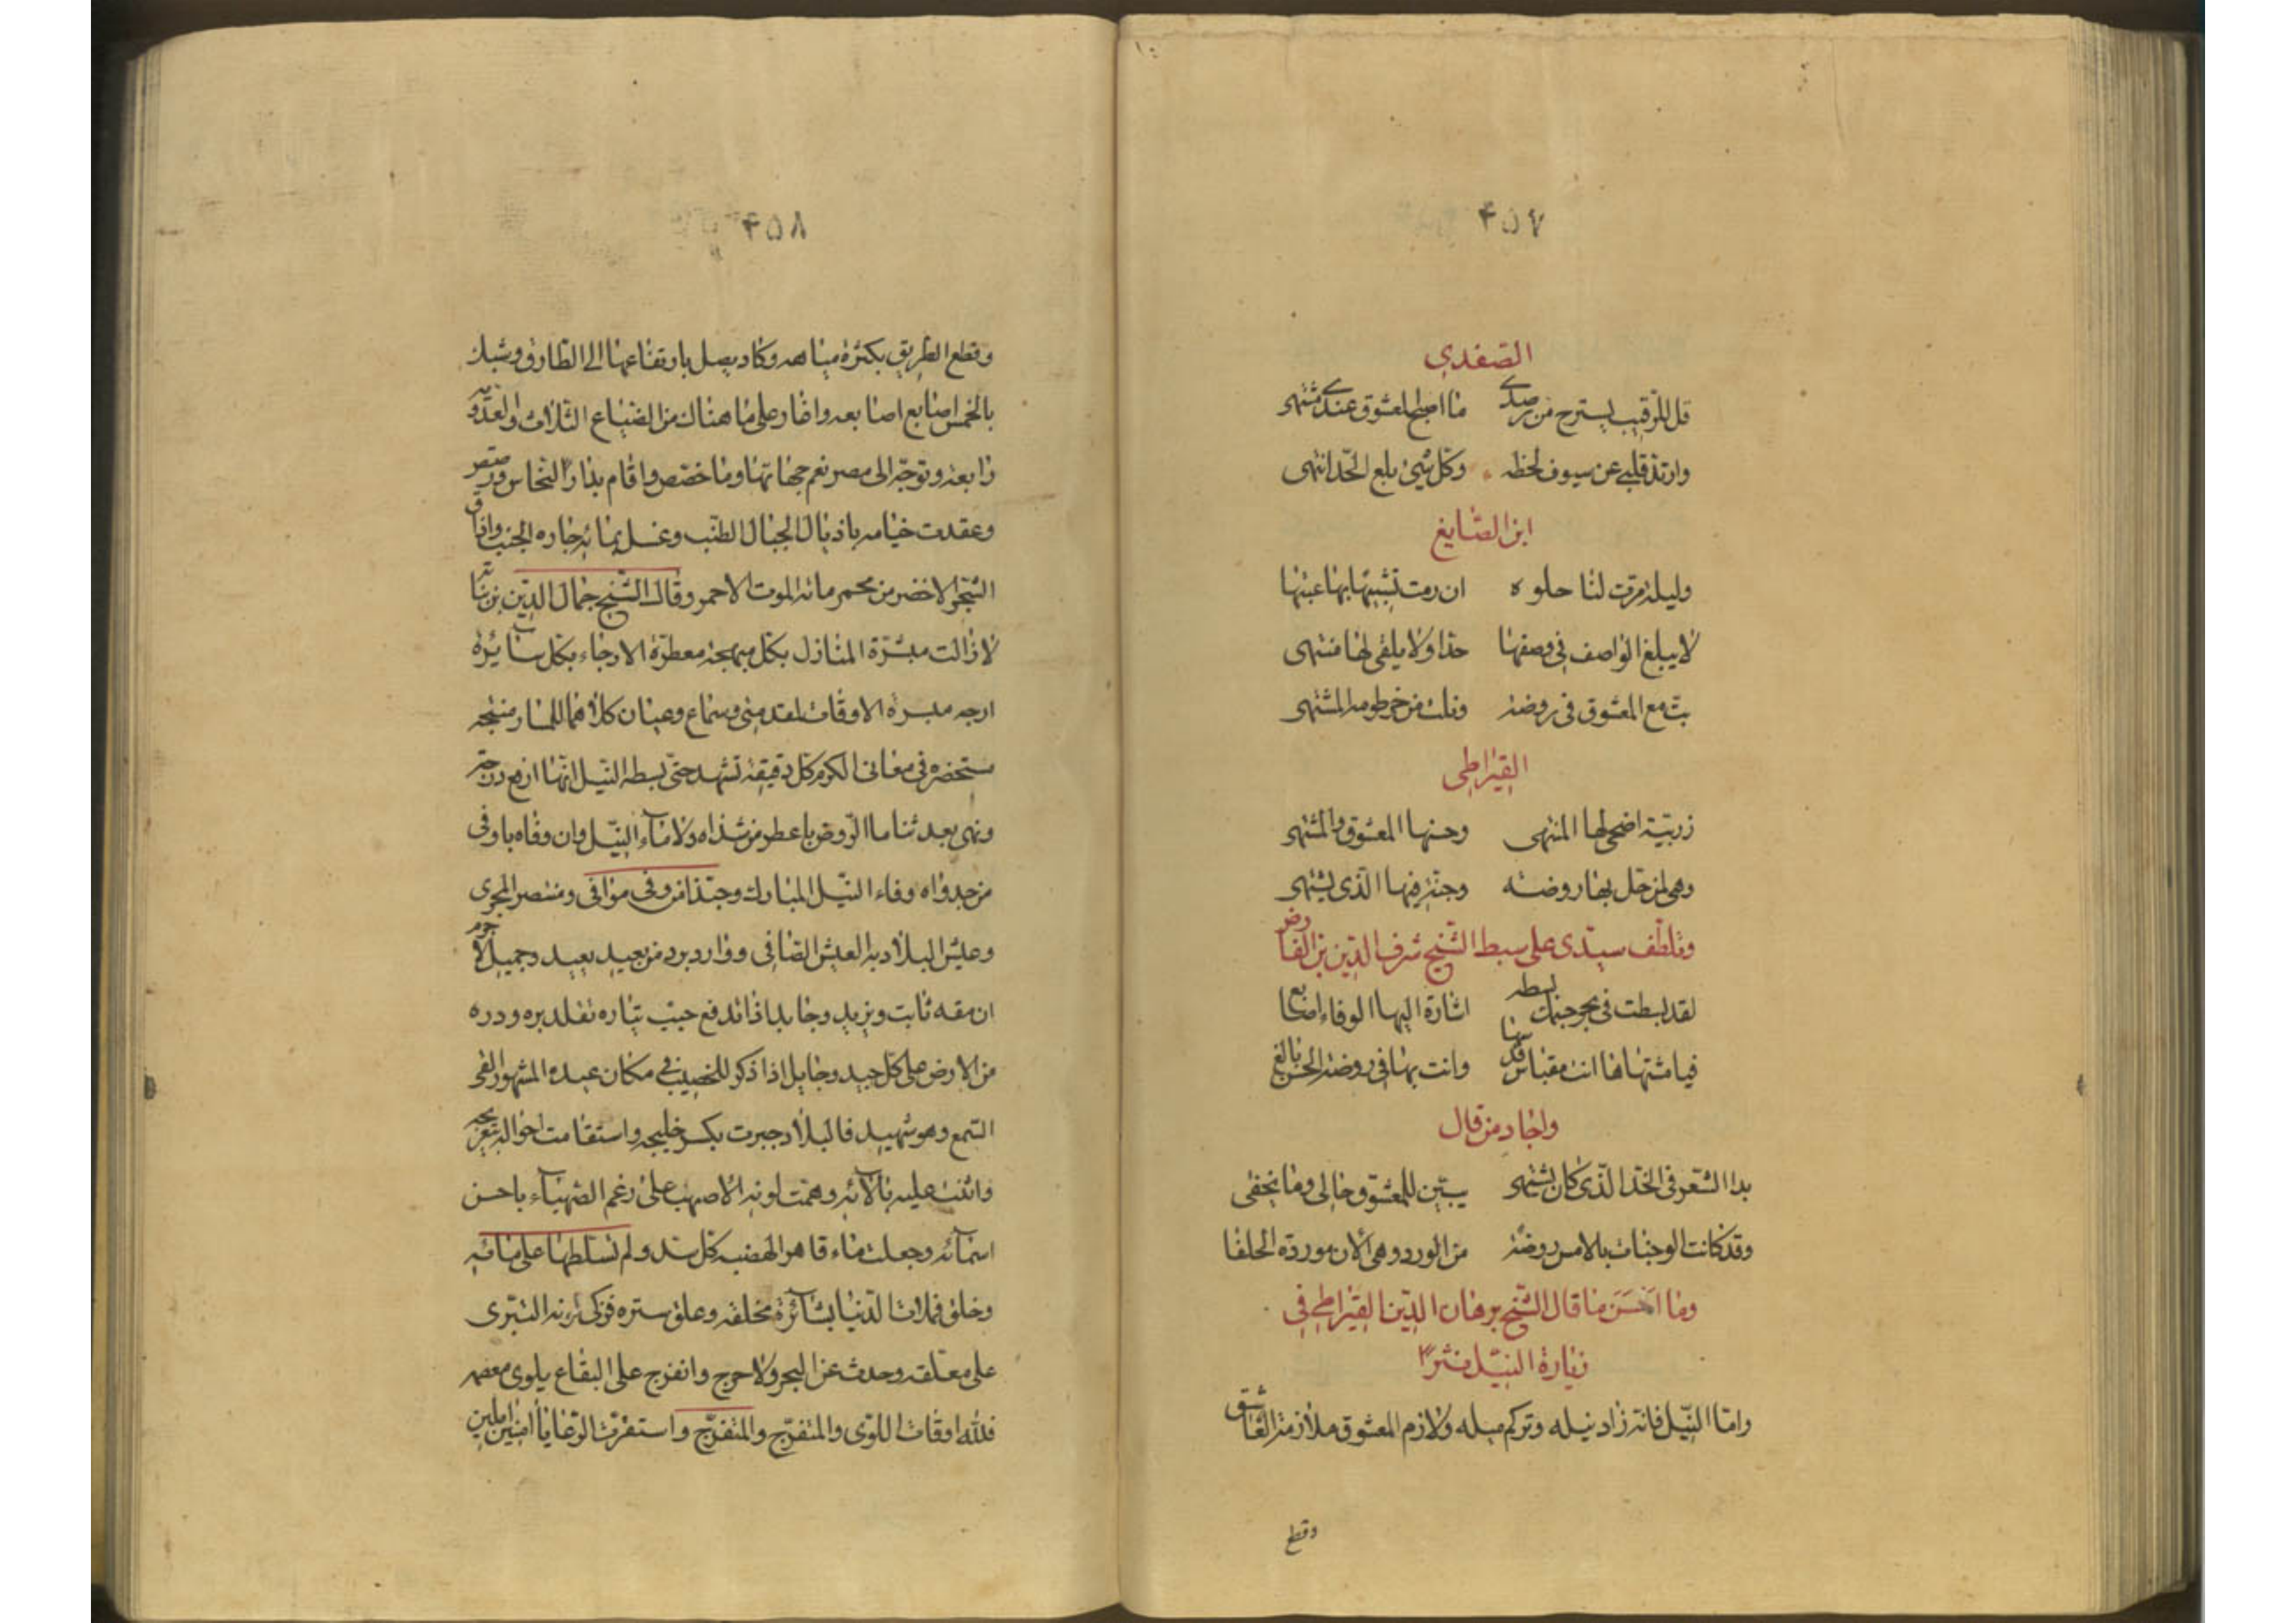 ٤٥٧
الصفدي
قل للرقيب يسترح من رصدي ما اصبح المعشوق عندي مشتهى
وارتد قلبي عن سيوف لحظه وكل شيئ بلغ الحد انتهى
ابن الصايغ
وليلة مرت لنا حلوه ان رمت تشبيها بها عبتها
لا يبلغ الواصف في وصفها حدا ولا يلقى لها منتهى
بت مع المعشوق في روضه ونلت من خرطومه المشتهى
القيراطي
زربية اضحى لها المنتهى وحسنها المعشوق والمشتهى
وهي لمن حل بها روضه وجنة فيها الذي يشتهى
وتلطف سيدي علي سبط الشيخ شرف الدين بن الفارض
لقد بسطت في بحر جنبك بسطه اشارة اليها الوفاء اصابع
فيا مشتهاها انت مقياس قدسها وانت بها في روضة الحسن بالغ
واجاد من قال
بدا الشعر في الخد الذي كان يشتهى يبين للمعشوق حالي وما يخفى
وقد كانت الوجنات بالامس روضة من الورد وهي الآن موردة الحلفا
وما احسن ما قال الشيخ برهان الدين القيراطي في
زيارة النيل نثرًا
واما النيل فانه زاد نيله وتركم ميله ولازم المعشوق ملازمة العاشق
وقطع
٤٥٨
وقطع الطريق بكثرة مياهه وكاد يصل بارتفاعها الى الطارق وشبك
بالخمس اصابع اصابعه واغار على ما هناك من الضياع الثلاث والعدويه
رابعة وتوجه الى مصر نعم جهاتها وما خصص واقام بدار النحاس
وعقدت خيامه باذيال الجبال الطنب وغسل بمائه جاره الجنب واذاق
الشجر الاخضر من محمر مائه الموت الاحمر وقال الشيخ جمال الدين بن نباته
لا زالت مبشرة المنازل بكل مبهجة معطرة الارجاء بكل سائرة
ارجه ميسرة الاوقات لمقدمتي وسماع وعيان كلاهما للمسار منتجه
مستحضره في معاني الكرم كل دقيقة تشهد حتى بسطه النيل انها ارفع درجه
ونهى بعد ثناء ما الروض باعطر من شذاه ولا ماء النيل وان وفاه باوفى
من جدواه وفاء النيل المبارك وحبذا من وفي موافي ومنتصر المجرى
وعيش البلاد به العيش الصافي ووارد يرد من بعيد بعيد وجميل لا جرم
ان مقه ثابت ويزيد وجايد اذا اندفع حبب تياره تقلد بره ودره
من الارض على كل جيد وجايل اذا ذكر للخصيب في مكان عيده المشهور القى
السمع وهو شهيد فالبلاد جبرت بكسر خليجه واستقامت احواله
واثنت عليه بالآئه وهمت لونه الاصهب على رغم الصهباء باحسن
اسمائه وجعلت ماء قاهر الهضبه كل سد ولم تسلطها على منافيه
وخلق فملأت الدنيا بشائره مخلقه وعلق ستره فزكى لونه التبرى
على معلقه وحدث عن البحر ولا حرج وانفرج على البقاع يلوى معصمه
فلله اوقات اللوى والمتفرج والمنفرج واستقرت الرعايا آمنين آملين